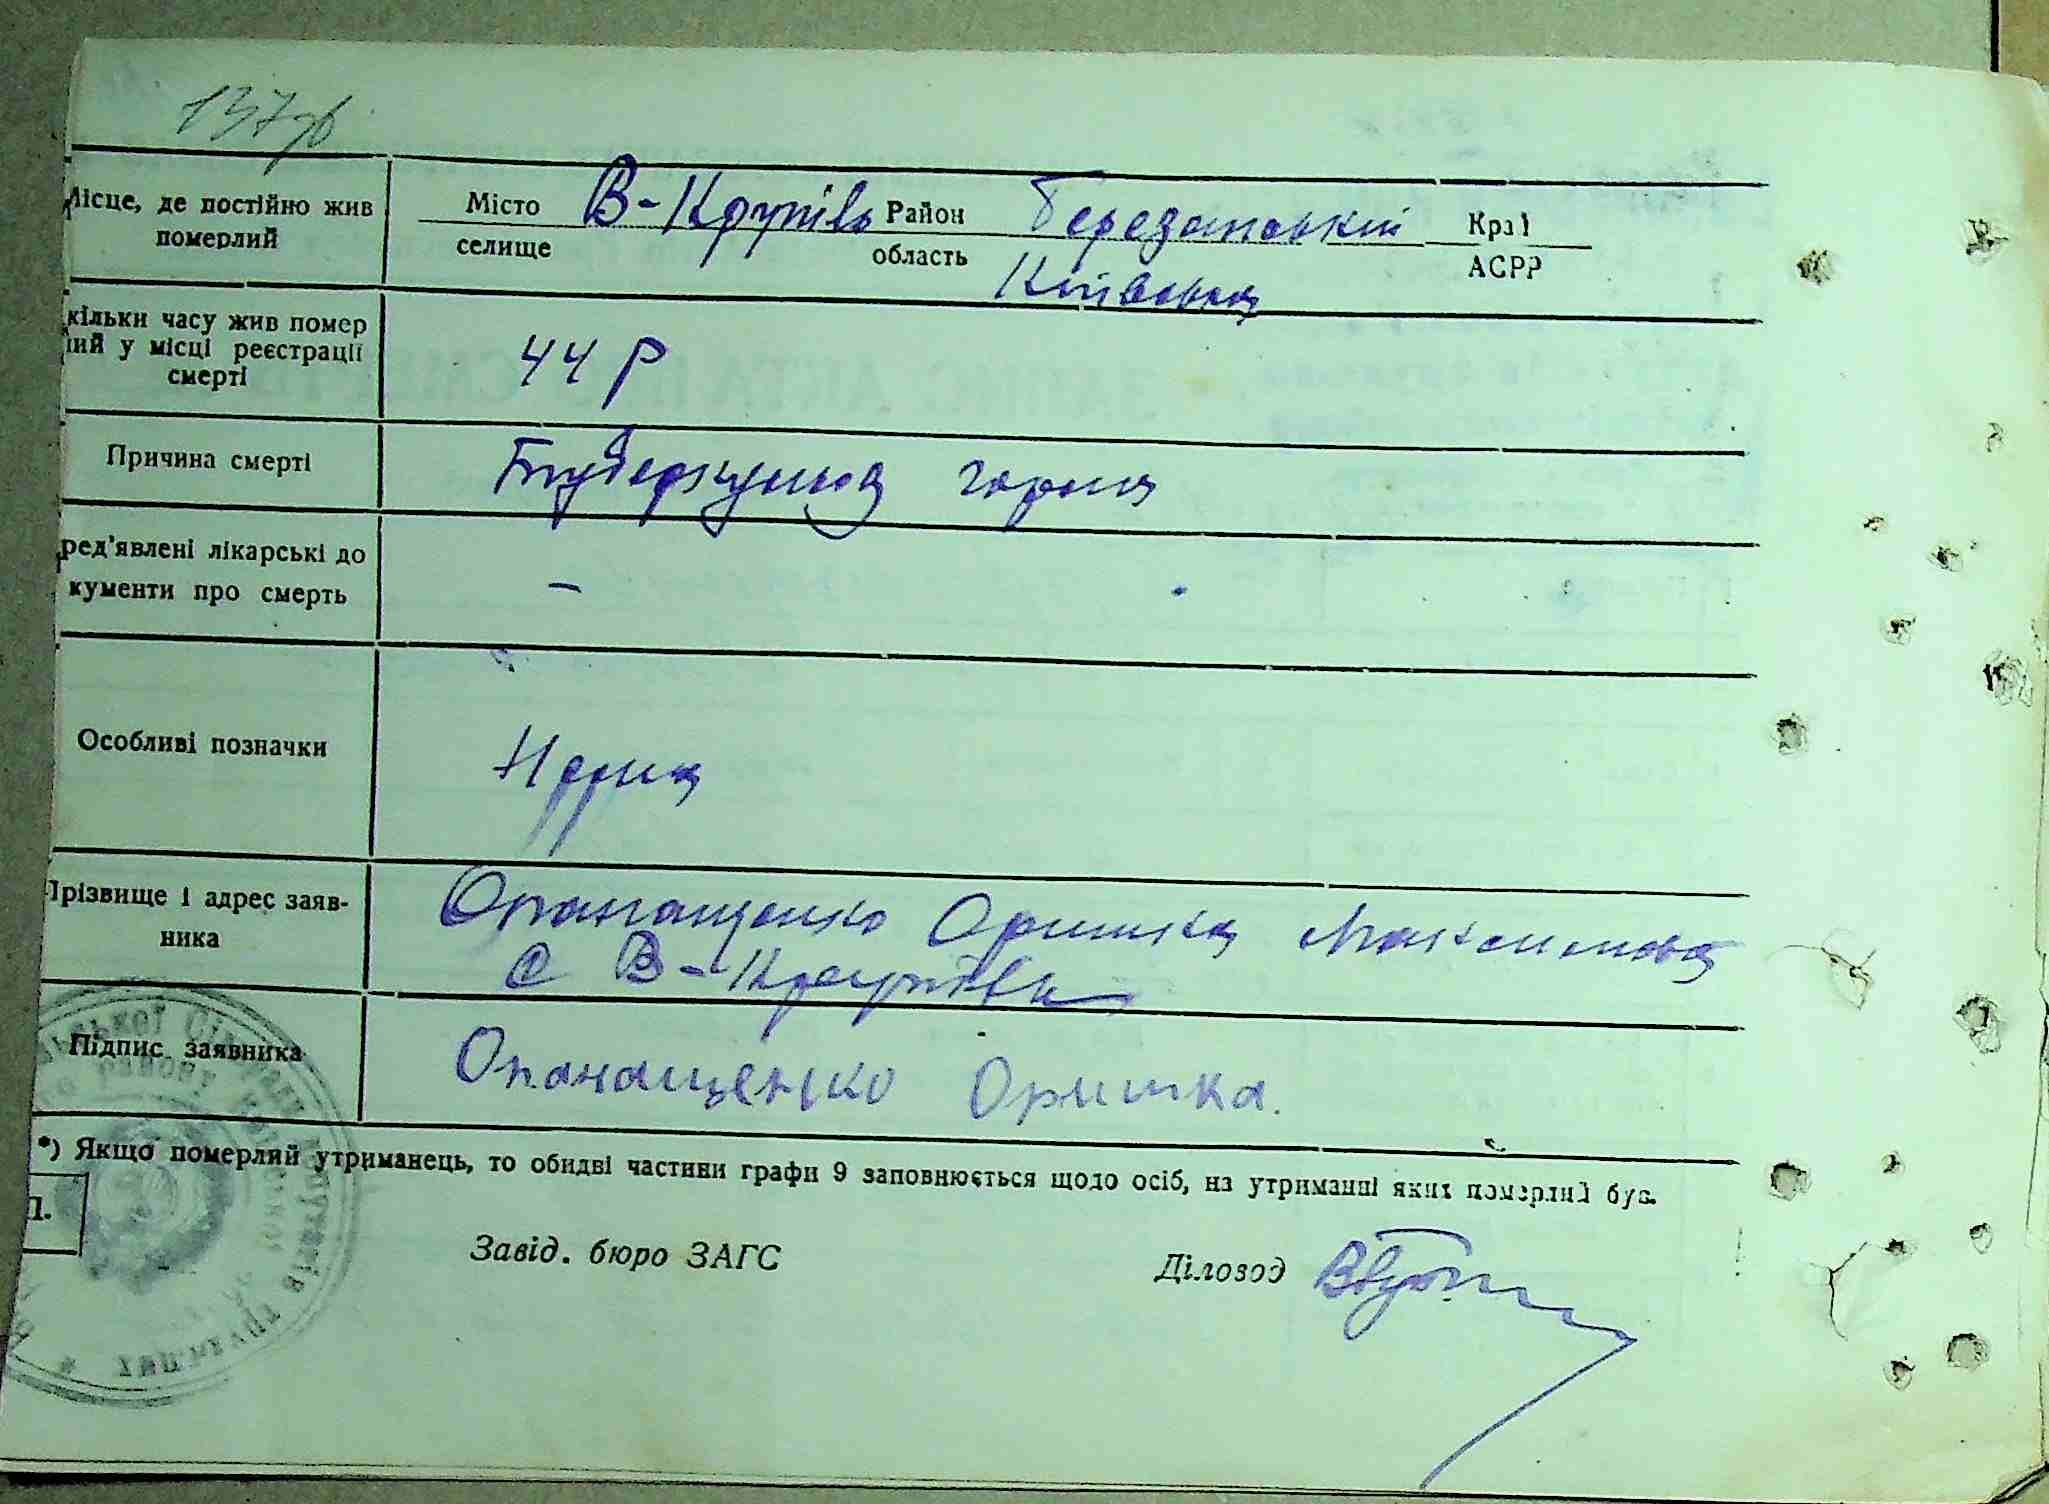 137зв
Місце, де постійно жив померлий
Місто селище В-Крупіль Район область Березанський Київська Край АСРР
кільки часу жив помер
ий у місці реєстрації
смерті
44 р
Причина смерті
Туберкульоз горла
ред'явлені лікарські до
кументи про смерть
-
Особливі позначки
Прізвище і адрес заяв-
ника
Опанащенко Оришка Максимова
с В-Крупіль
Підпис заявника
Опанащенко Оришка.
*) Якщо померлий утриманець, то обидві частини графи 9 заповнюється щодо осіб, на утриманні яких померлий був.
П.
Завід. бюро ЗАГС
Діловод